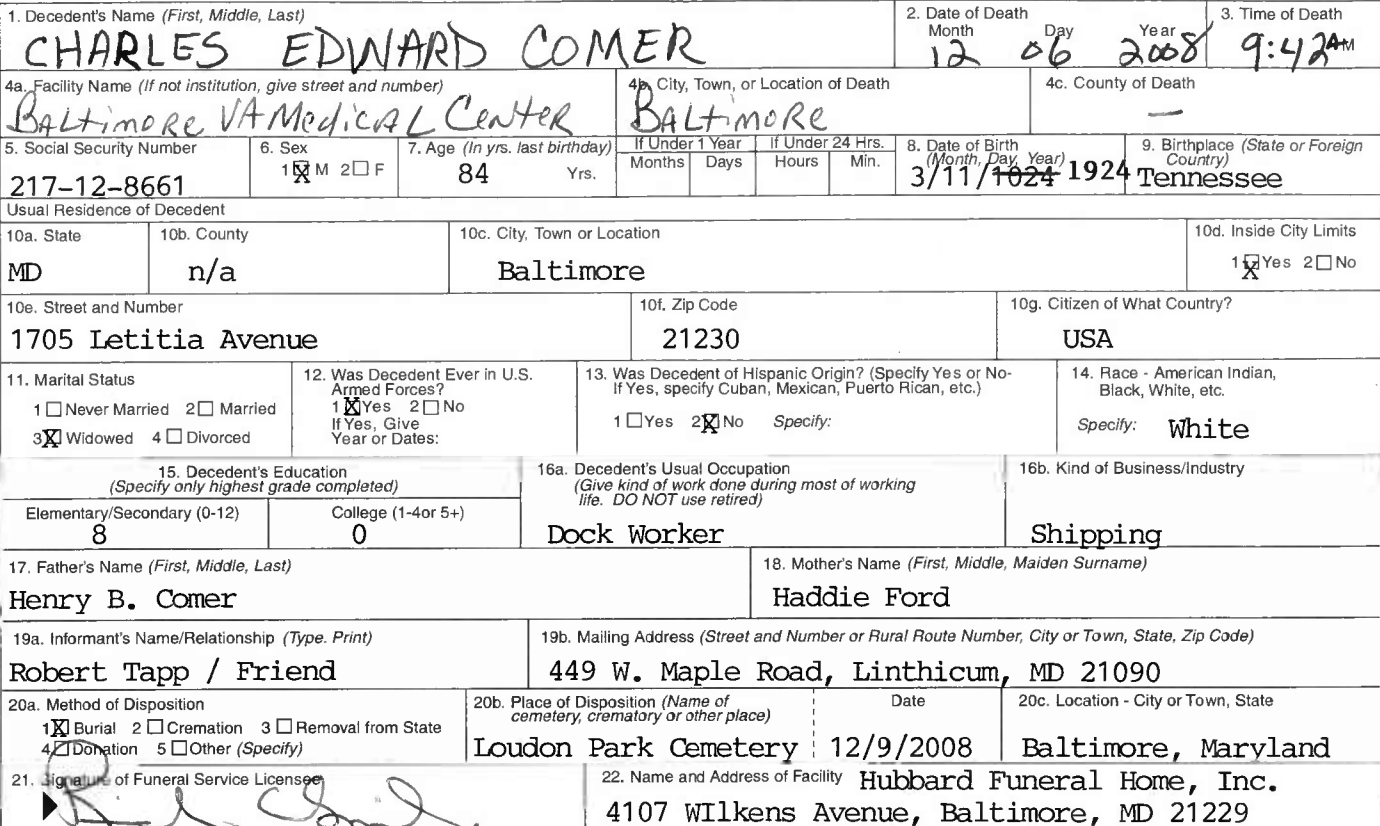 1. Decedent's Name (First, Middle, Last)
CHARLES EDWARD COMER
2. Date of Death
Month Day Year
12 06 2008
3. Time of Death
9:42 AM
4a. Facility Name (If not institution, give street and number)
BALtimoRE VA MedicAL CenteR
4b. City, Town, or Location of Death
BALtimoRE
4c. County of Death
—
5. Social Security Number
217-12-8661
6. Sex
1☒ M 2☐ F
7. Age (In yrs. last birthday)
84 Yrs.
If Under 1 Year
Months Days
If Under 24 Hrs.
Hours Min.
8. Date of Birth
(Month, Day, Year)
3/11/1024 1924
9. Birthplace (State or Foreign
Country)
Tennessee
Usual Residence of Decedent
10a. State
MD
10b. County
n/a
10c. City, Town or Location
Baltimore
10d. Inside City Limits
1☒ Yes 2☐ No
10e. Street and Number
1705 Letitia Avenue
10f. Zip Code
21230
10g. Citizen of What Country?
USA
11. Marital Status
1 ☐ Never Married 2☐ Married
3☒ Widowed 4 ☐ Divorced
12. Was Decedent Ever in U.S.
Armed Forces?
1☒ Yes 2☐ No
If Yes, Give
Year or Dates:
13. Was Decedent of Hispanic Origin? (Specify Yes or No-
If Yes, specify Cuban, Mexican, Puerto Rican, etc.)
1 ☐ Yes 2☒ No Specify:
14. Race - American Indian,
Black, White, etc.
Specify: White
15. Decedent's Education
(Specify only highest grade completed)
Elementary/Secondary (0-12)
8
College (1-4or 5+)
0
16a. Decedent's Usual Occupation
(Give kind of work done during most of working
life. DO NOT use retired)
Dock Worker
16b. Kind of Business/Industry
Shipping
17. Father's Name (First, Middle, Last)
Henry B. Comer
18. Mother's Name (First, Middle, Maiden Surname)
Haddie Ford
19a. Informant's Name/Relationship (Type. Print)
Robert Tapp / Friend
19b. Mailing Address (Street and Number or Rural Route Number, City or Town, State, Zip Code)
449 W. Maple Road, Linthicum, MD 21090
20a. Method of Disposition
1☒ Burial 2 ☐ Cremation 3 ☐ Removal from State
4☐ Donation 5 ☐ Other (Specify)
20b. Place of Disposition (Name of
cemetery, crematory or other place)
Loudon Park Cemetery
Date
12/9/2008
20c. Location - City or Town, State
Baltimore, Maryland
21. Signature of Funeral Service Licensee
22. Name and Address of Facility Hubbard Funeral Home, Inc.
4107 WIlkens Avenue, Baltimore, MD 21229